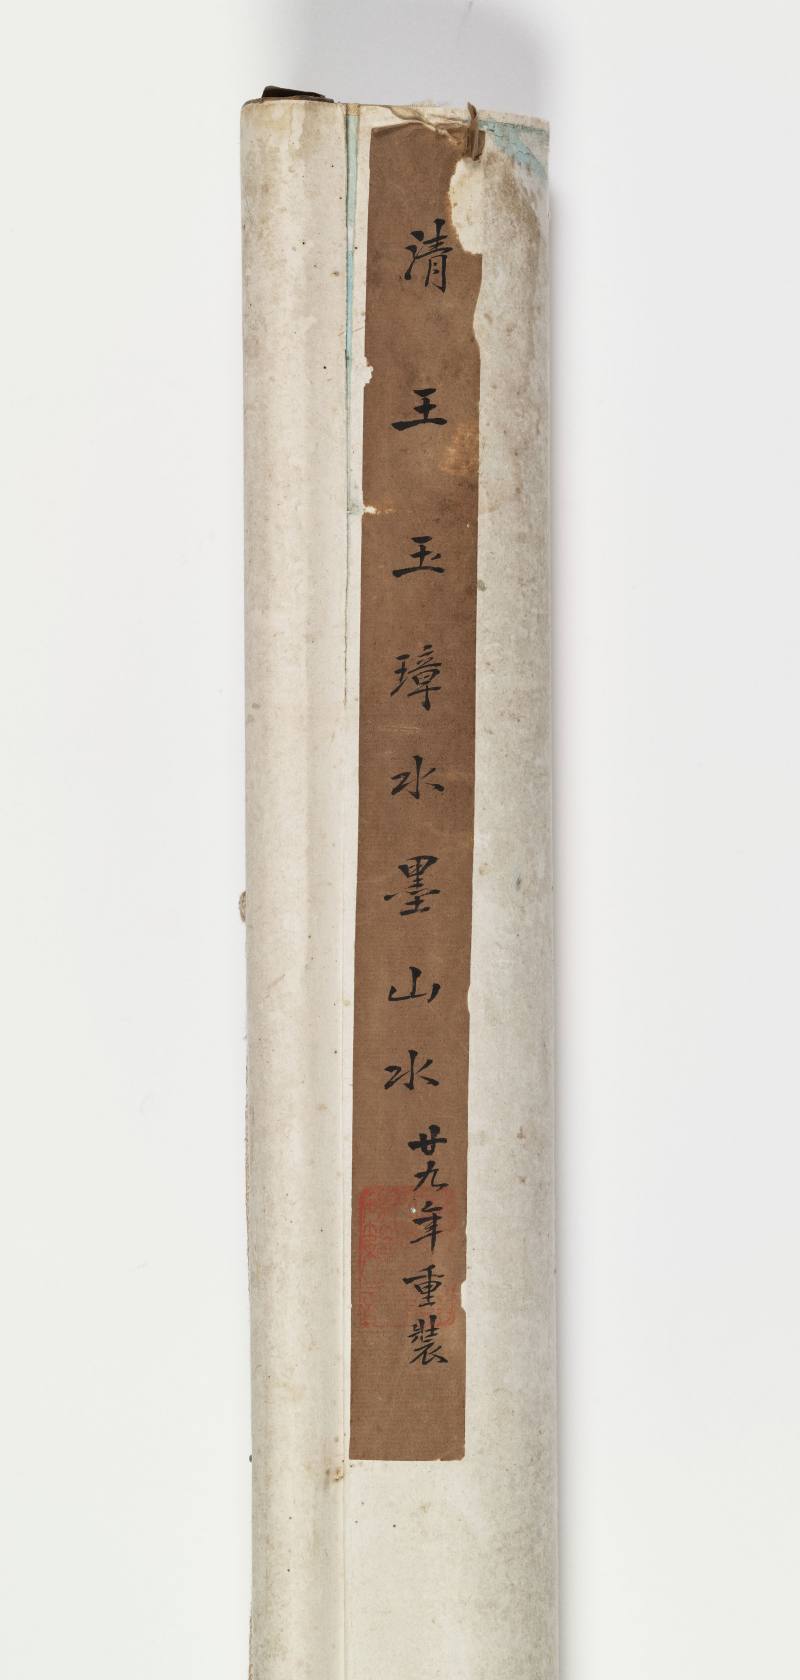 清王玉璋水墨山水
廿九年重裝